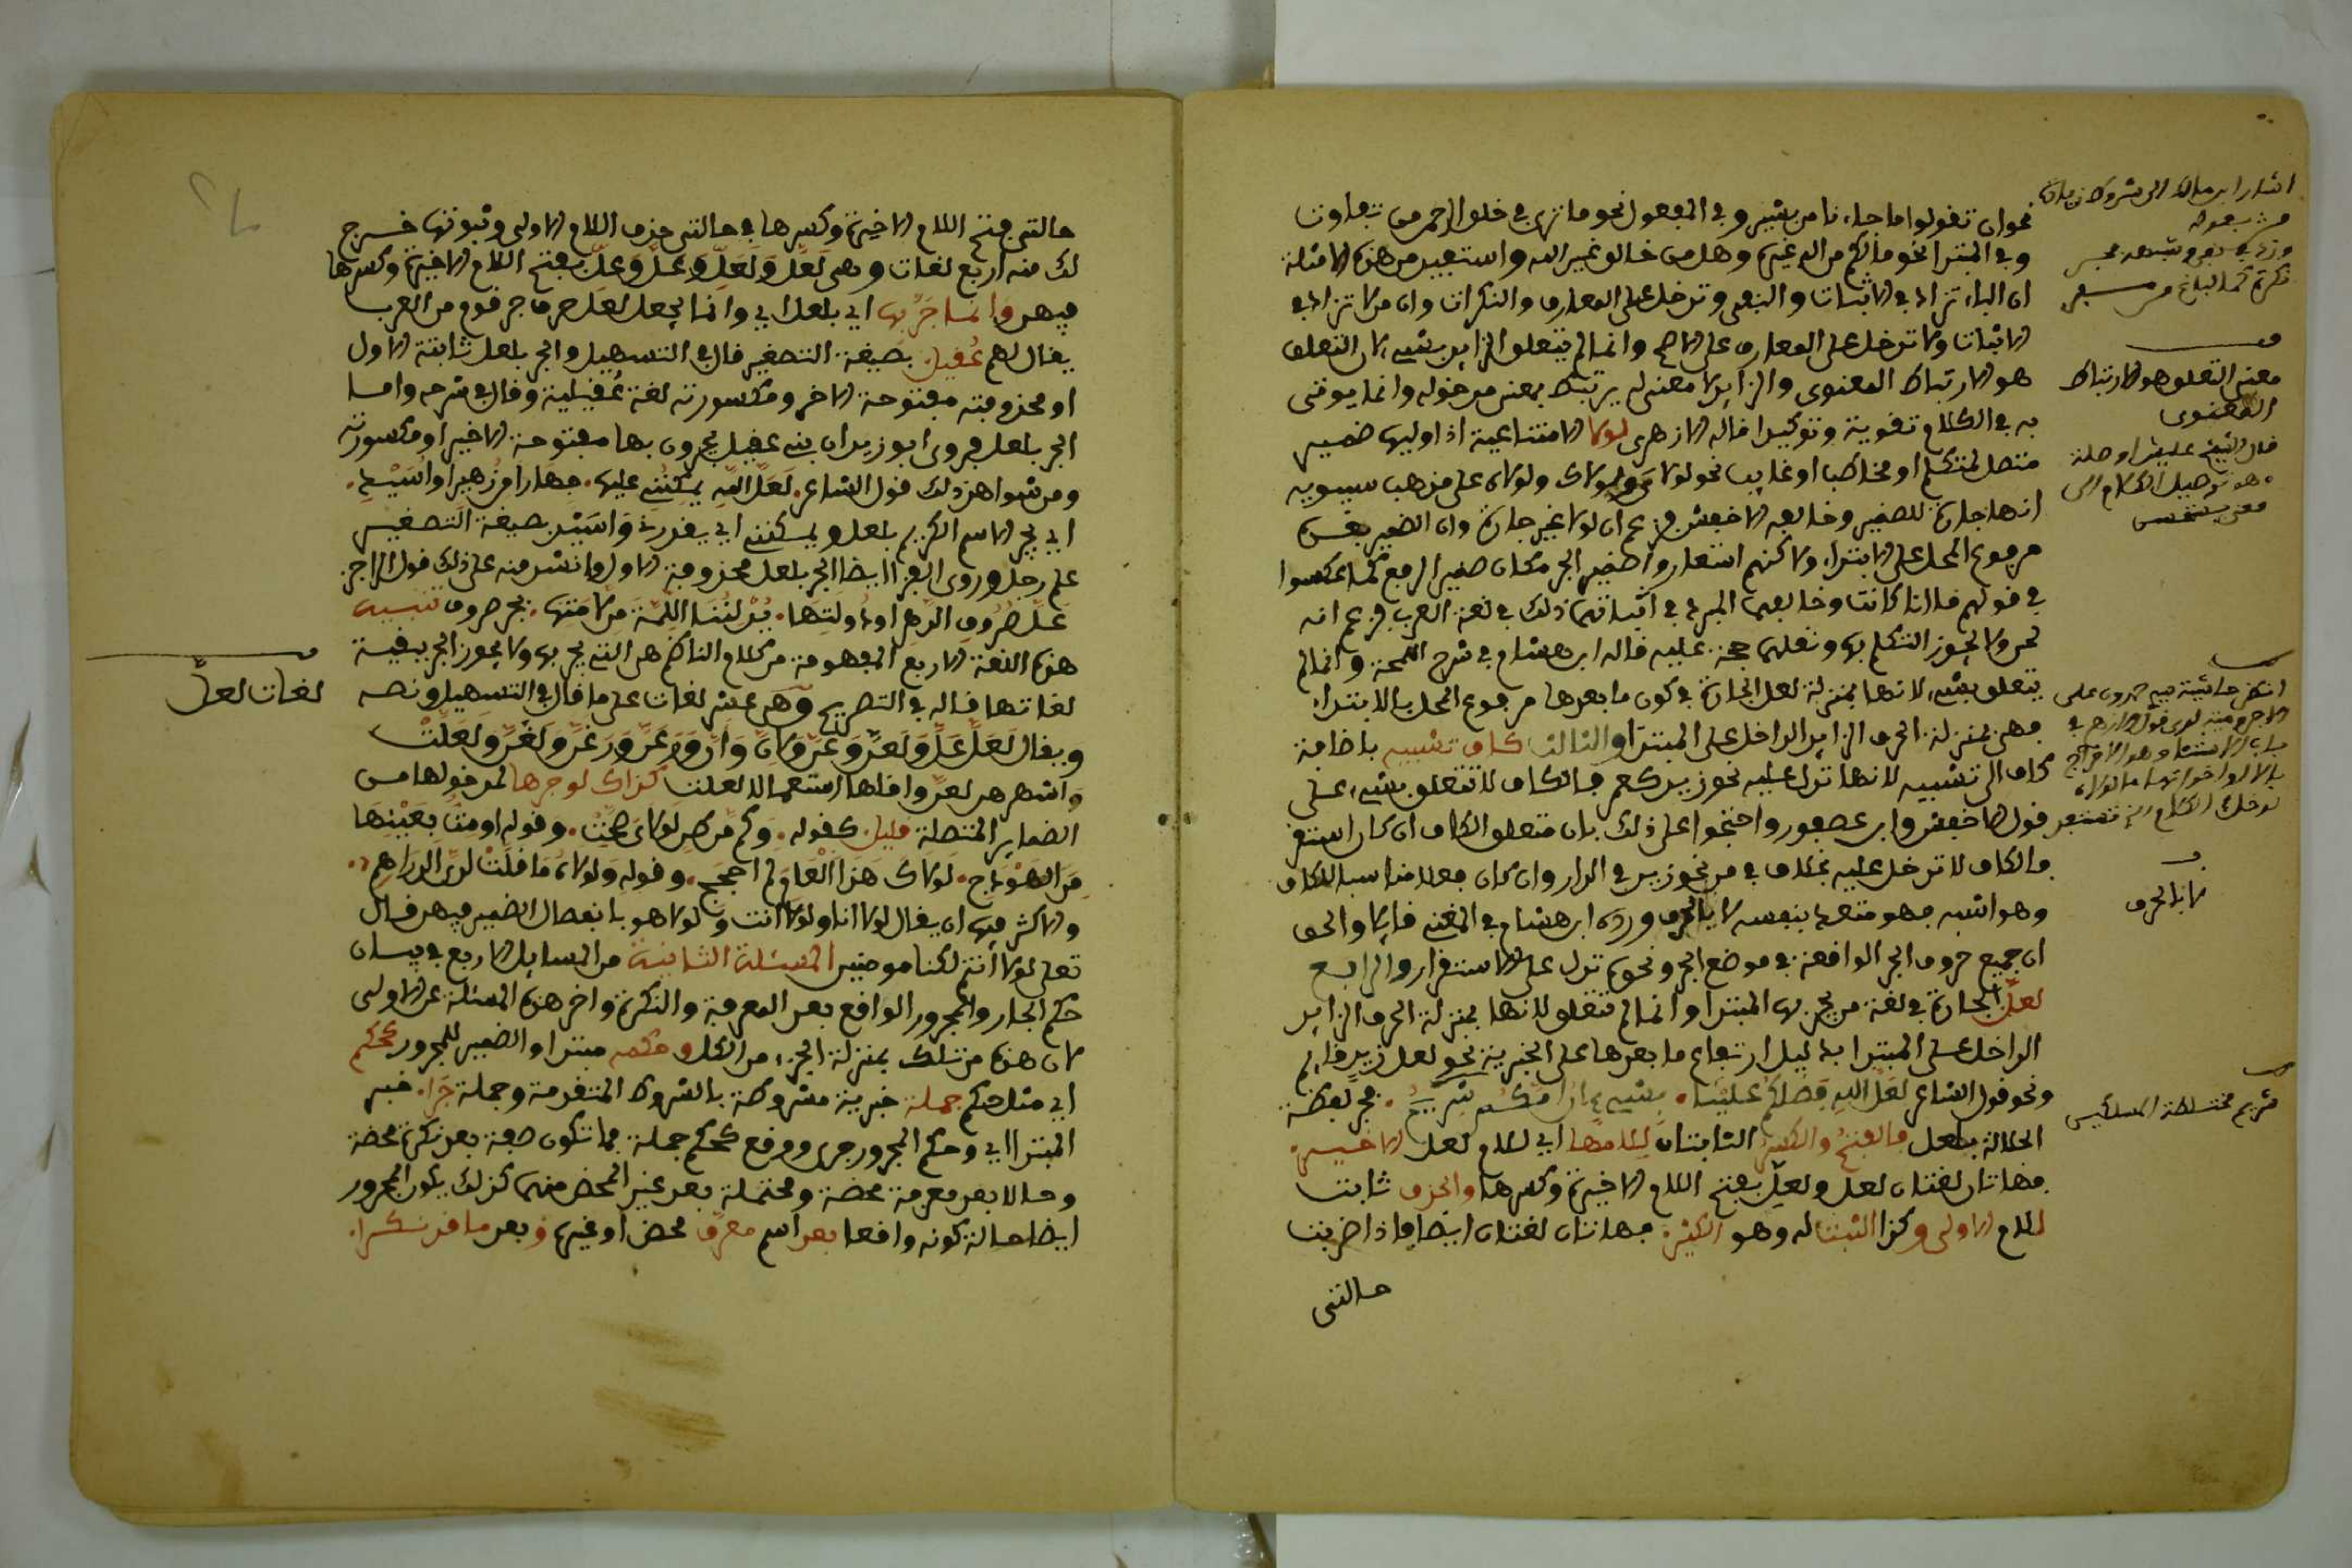 نحو ان تقولوا ما جاءنا من بشير وفي المفعول نحو ما ترى في خلق الرحمن من تفاوت
وفي المبتدا نحو ما لكم من اله غيره وهل من خالق غير الله واستفيد من هذه الامثلة
ان الباء تزاد في الاثبات والنفي وتدخل على المعارف والنكرات وان من لا تزاد في
الاثبات ولا تدخل على المعارف على الاصح وانما لم يتعلق الزايد بشيء لان التعلق
هو الارتباط المعنوي والزايد لا معنى له يرتبط بمعنى مدخوله وانما يوتى
به في الكلام تقوية وتوكيدا قاله الازهري لولا الامتناعية اذا وليها ضمير
متصل لمتكلم او مخاطب او غايب نحو لولاي ولولاك ولولاه على مذهب سيبويه
انها جارة للضمير وخالفه الاخفش فزعم ان لولا غير جارة وان الضمير بعدها
مرفوع المحل على الابتداء ولاكنهم استعاروا ضمير الجر مكان ضمير الرفع كما عكسوا
في قولهم ما انا كانت وخالفهما المبرد في اثباتهما ذلك في لغة العرب فزعم انه
لحن ولا يجوز التكلم به ونقلهما حجة عليه قاله ابن هشام في شرح اللمحة وانما لم
يتعلق بشيء لانها بمنزلة لعل الجارة في كون ما بعدها مرفوع المحل بالابتداء
فهي بمنزلة الحرف الزايد الداخل على المبتدا والثالث كاف تشبيه باضافة
كاف الى تشبيه لانها تدل عليه نحو زيد كعمرو فالكاف لا تتعلق بشيء على
قول الاخفش وابن عصفور واحتجوا على ذلك بان متعلق الكاف ان كان استقر
فالكاف لا تدخل عليه بخلاف في من نحو زيد في الدار وان كان فعلا مناسبا للكاف
وهو اشبه فهو متعد بنفسه لا بالحرف ورده ابن هشام في المغني قايلا والحق
ان جميع حروف الجر الواقعة في موضع الخبر ونحوه تدل على الاستقرار والرابع
لعل الجارة في لغة من يجر بها المبتدا وانما لم تتعلق لانها بمنزلة الحرف الزايد
الداخل على المبتدا بدليل ارتفاع ما بعدها على الخبرية نحو لعل زيد قايم
ونحو قول الشاعر لعل الله فضلكم علينا بشيء ان امكم شريم فجر لفظة
الجلالة بلعل فالفتح والكسر الثابتان للامها اي للام لعل الاخيرة
فهاتان لغتان لعل ولعل بفتح اللام الاخيرة وكسرها والحذف ثابت
للام الاولى وكذا اثبتا له وهو الكثير فهاتان لغتان ايضا فاذا ضربت
حالتي
معنى التعلق هو الارتباط
المعنوي
لا بالحرف
لغات لعل
حالتي فتح اللام الاخيرة وكسرها في حالتي حذف اللام الاولى وثبوتها خرج
لك منه اربع لغات وهي لعل ولعل وعل وعل بفتح اللام الاخيرة وكسرها
فيهن وانما جر بها اي بلعل اي وانما يجعل لعل حرف جر قوم من العرب
يقال لهم عقيل بصيغة التصغير قال في التسهيل والجر بلعل ثابتة الاول
او محذوفته مفتوحة الاخر ومكسورته لغة عقيلية وقال في شرحه واما
الجر بلعل فروى ابو زيد ان بني عقيل يجرون بها مفتوحة الاخير او مكسورته
ومن شواهد ذلك قول الشاعر لعل الله يمكنني عليها جهارا من زهير او اسيد
اي بجر الاسم الكريم بلعل ويمكنني اي يقدرني واسيد بصيغة التصغير
علم رجل وروى الفرا ايضا الجر بلعل محذوفة الاول وانشد منه على ذلك قول الراجز
عل صروف الدهر او دولاتها يدلننا اللمة من لماتها بجر صروف تنبيه
هذه اللغة الاربع المفهومة من كلام الناظم هي التي يجر بها ولا يجوز الجر ببقية
لغاتها قاله في التصريح وهي عشر لغات على ما قال في التسهيل ونصه
ويقال لعل عل ولعن وعن ولان وان ورعن ورغن ولغن ولعلت
واشهرهن لعل واقلها استعمالا لعلت كذاك لو جرها لمدخولها من
الضماير المتصلة قليل كقوله وكم موطن لولاي طحت وقوله اومت بعينيها
من الهودج لولاك هذا العام لم احجج وقوله ولولاه ما قلت لدي الدراهم
والاكثر فيها ان يقال لولا انا ولولا انت ولولا هو بانفصال الضمير فيهن قال
تعلى لولا انتم لكنا مومنين المسئلة الثانية من المسايل الاربع في بيان
حكم الجار والمجرور الواقع بعد المعرفة والنكرة واخر هذه المسئلة عن الاولى
لان هذه من تلك بمنزلة الجزء من الكل وحكمه مبتدا والضمير للمجرور كحكم
اي مثل حكم جملة خبرية مشروطة بالشروط المتقدمة وجملة جرا خبر
المبتدا اي وحكم المجرور جرى ووقع كحكم جملة فما تكون صفة بعد نكرة محضة
وحالا بعد معرفة محضة ومحتملة بعد غير المحض منهما كذلك يكون المجرور
ايضا حالة كونه واقعا بعد اسم معرف محض او غيره وبعد ما قد نكرا